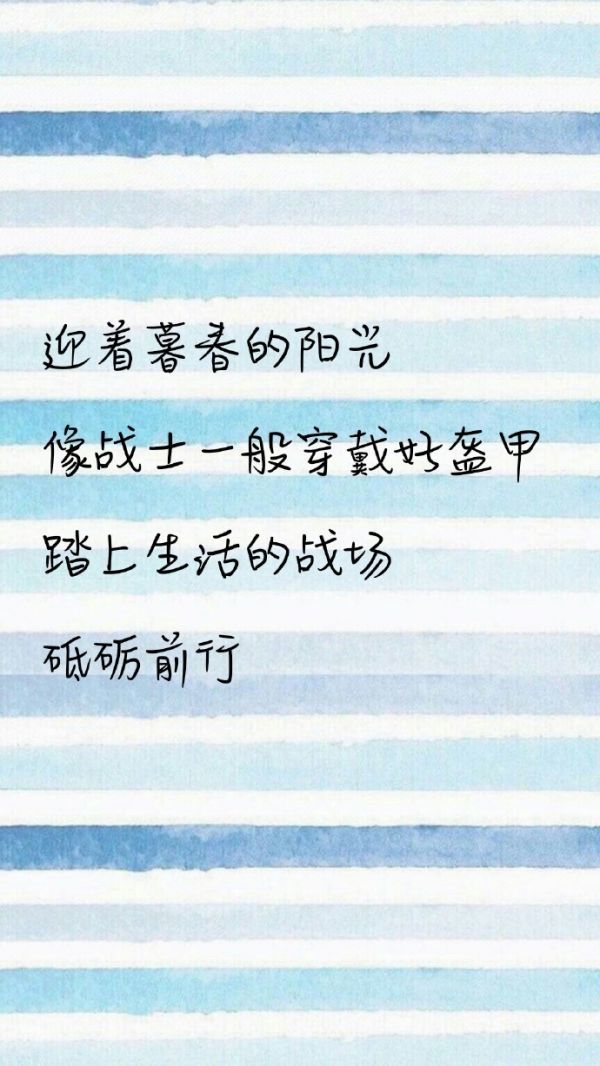 迎着暮春的阳光
像战士一般穿戴好盔甲
踏上生活的战场
砥砺前行